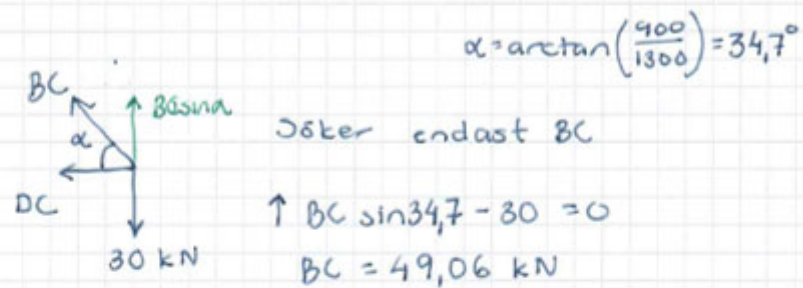 α = arctan(900/1300) = 34,7°
BC
BCsinα
α
DC
30 kN
Söker endast BC
↑ BC sin34,7 - 30 = 0
BC = 49,06 kN